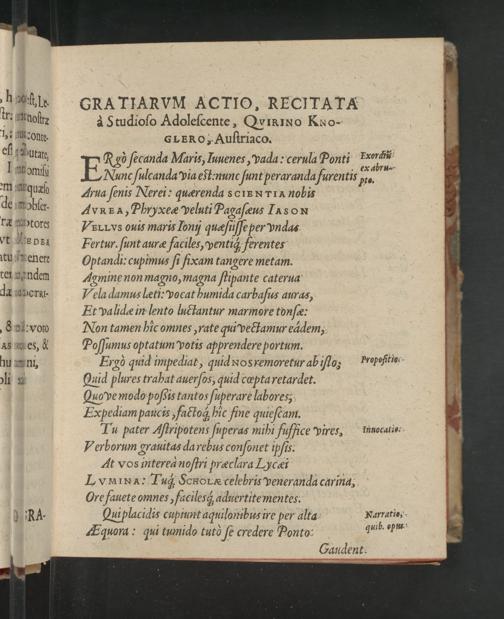 GRATIARVM ACTIO, RECITATA
à Studioso Adolescente, QVIRINO KNO-
GLERO, Austriaco.
ERgò secanda Maris, Iuuenes, vada: cerula Ponti
Nunc sulcanda via est: nunc sunt peraranda furentis
Arua senis Nerei: quærenda SCIENTIA nobis
AVREA, Phryxeæ veluti Pagasæus IASON
VELLVS ouis maris Ionij quæsisse per vndas
Fertur. sunt auræ faciles, ventiq́; ferentes
Optandi: cupimus si fixam tangere metam.
Agmine non magno, magna stipante caterua
Vela damus læti: vocat humida carbasus auras,
Et validæ in lento luctantur marmore tonsæ:
Non tamen hîc omnes, rate qui vectamur eâdem,
Possumus optatum votis apprendere portum.
Ergò quid impediat, quid NOS remoretur ab isto;
Quid plures trahat auersos, quid cœpta retardet.
Quove modo poßis tantos superare labores;
Expediam paucis, factoq́; hîc fine quiescam.
Tu pater Astripotens superas mihi suffice vires,
Verborum grauitas da rebus consonet ipsis.
At VOS interea nostri præclara Lycæi
LVMINA: Tuq́; SCHOLÆ celebris veneranda carina,
Ore fauete omnes, facilesq́; aduertite mentes.
Qui placidis cupiunt aquilonibus ire per alta
Æquora: qui tumido tutò se credere Ponto
Gaudent.
Exordiũ
ex abru-
pto.
Propositio.
Inuocatio.
Narratio,